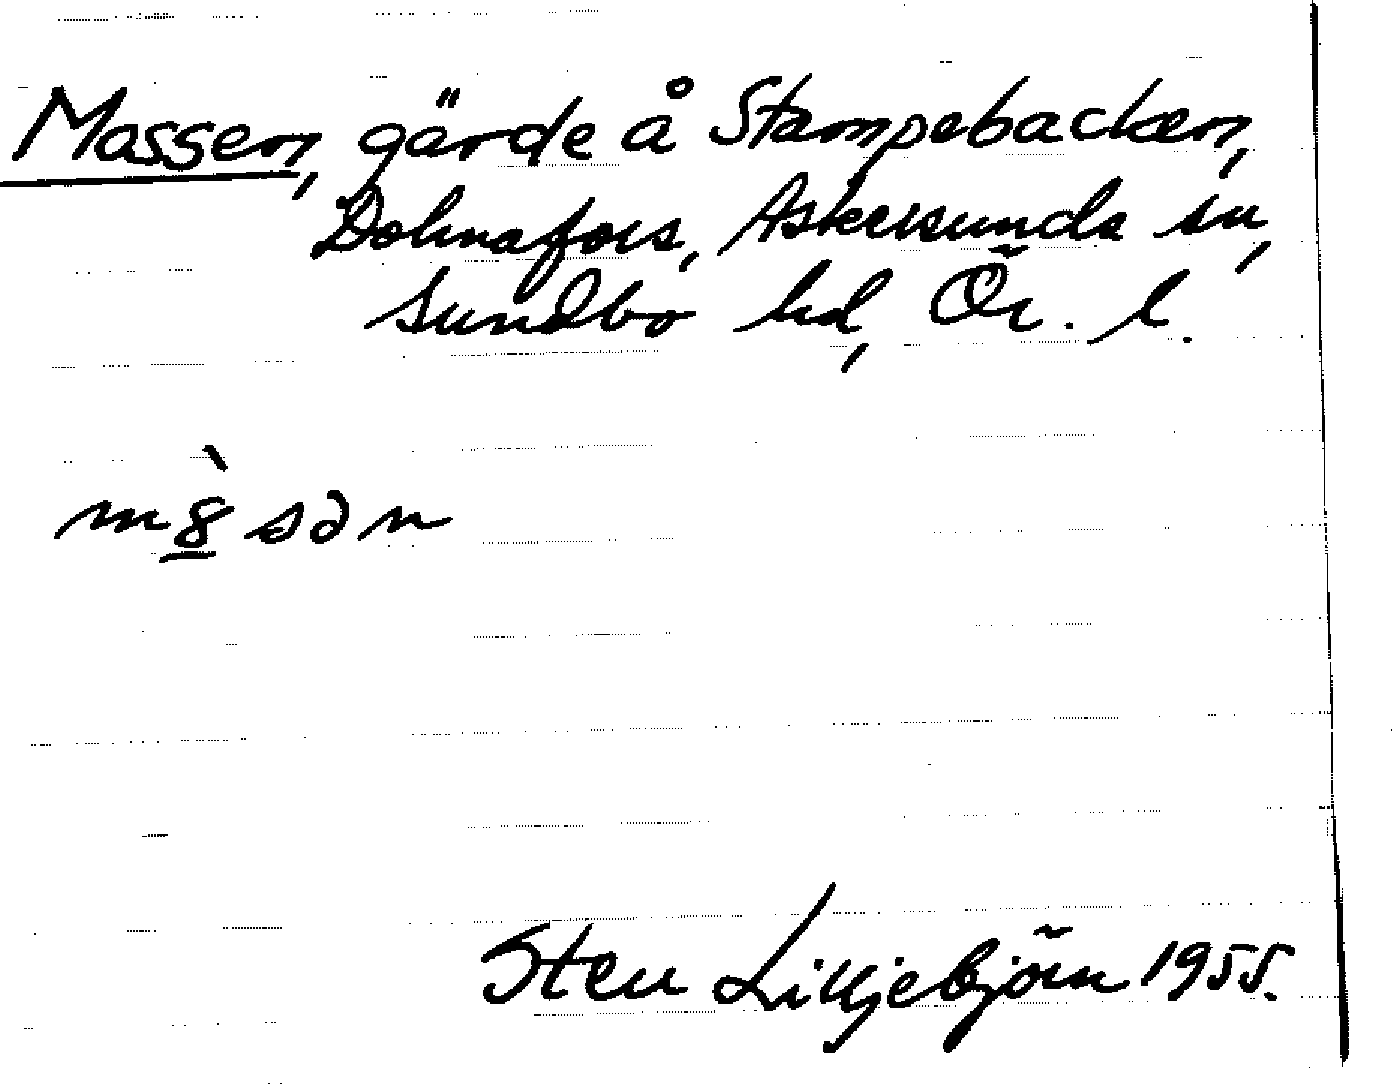 Mossen, gärde å Stampebacken,
Dohnafors, Askersunds sn,
Sundbo hd, Ör. l.
m8̲̀sən
Sten Lilljebjörn 1955.